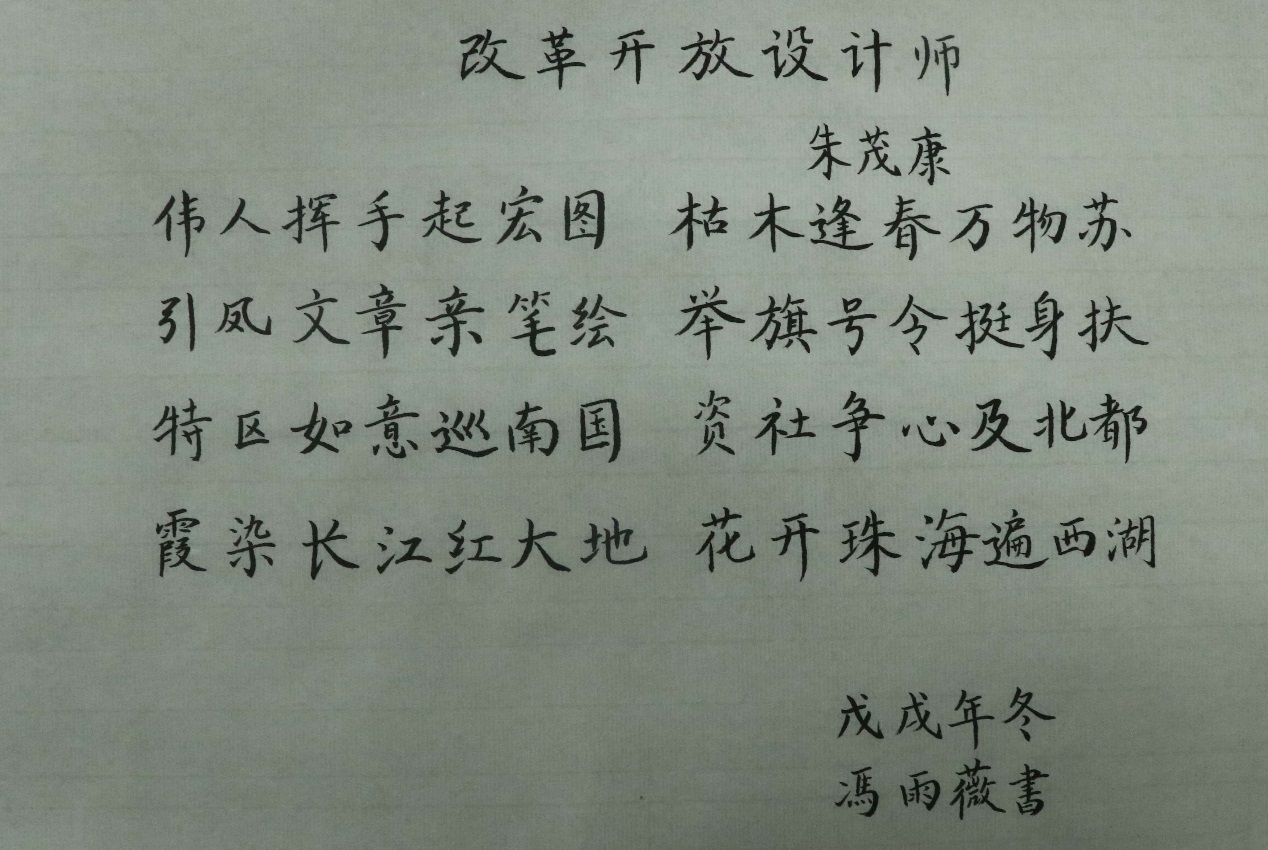 改革开放设计师
朱茂康
伟人挥手起宏图 枯木逢春万物苏
引凤文章亲笔绘 举旗号令挺身扶
特区如意巡南国 资社争心及北都
霞染长江红大地 花开珠海遍西湖
戊戌年冬
馮雨薇書